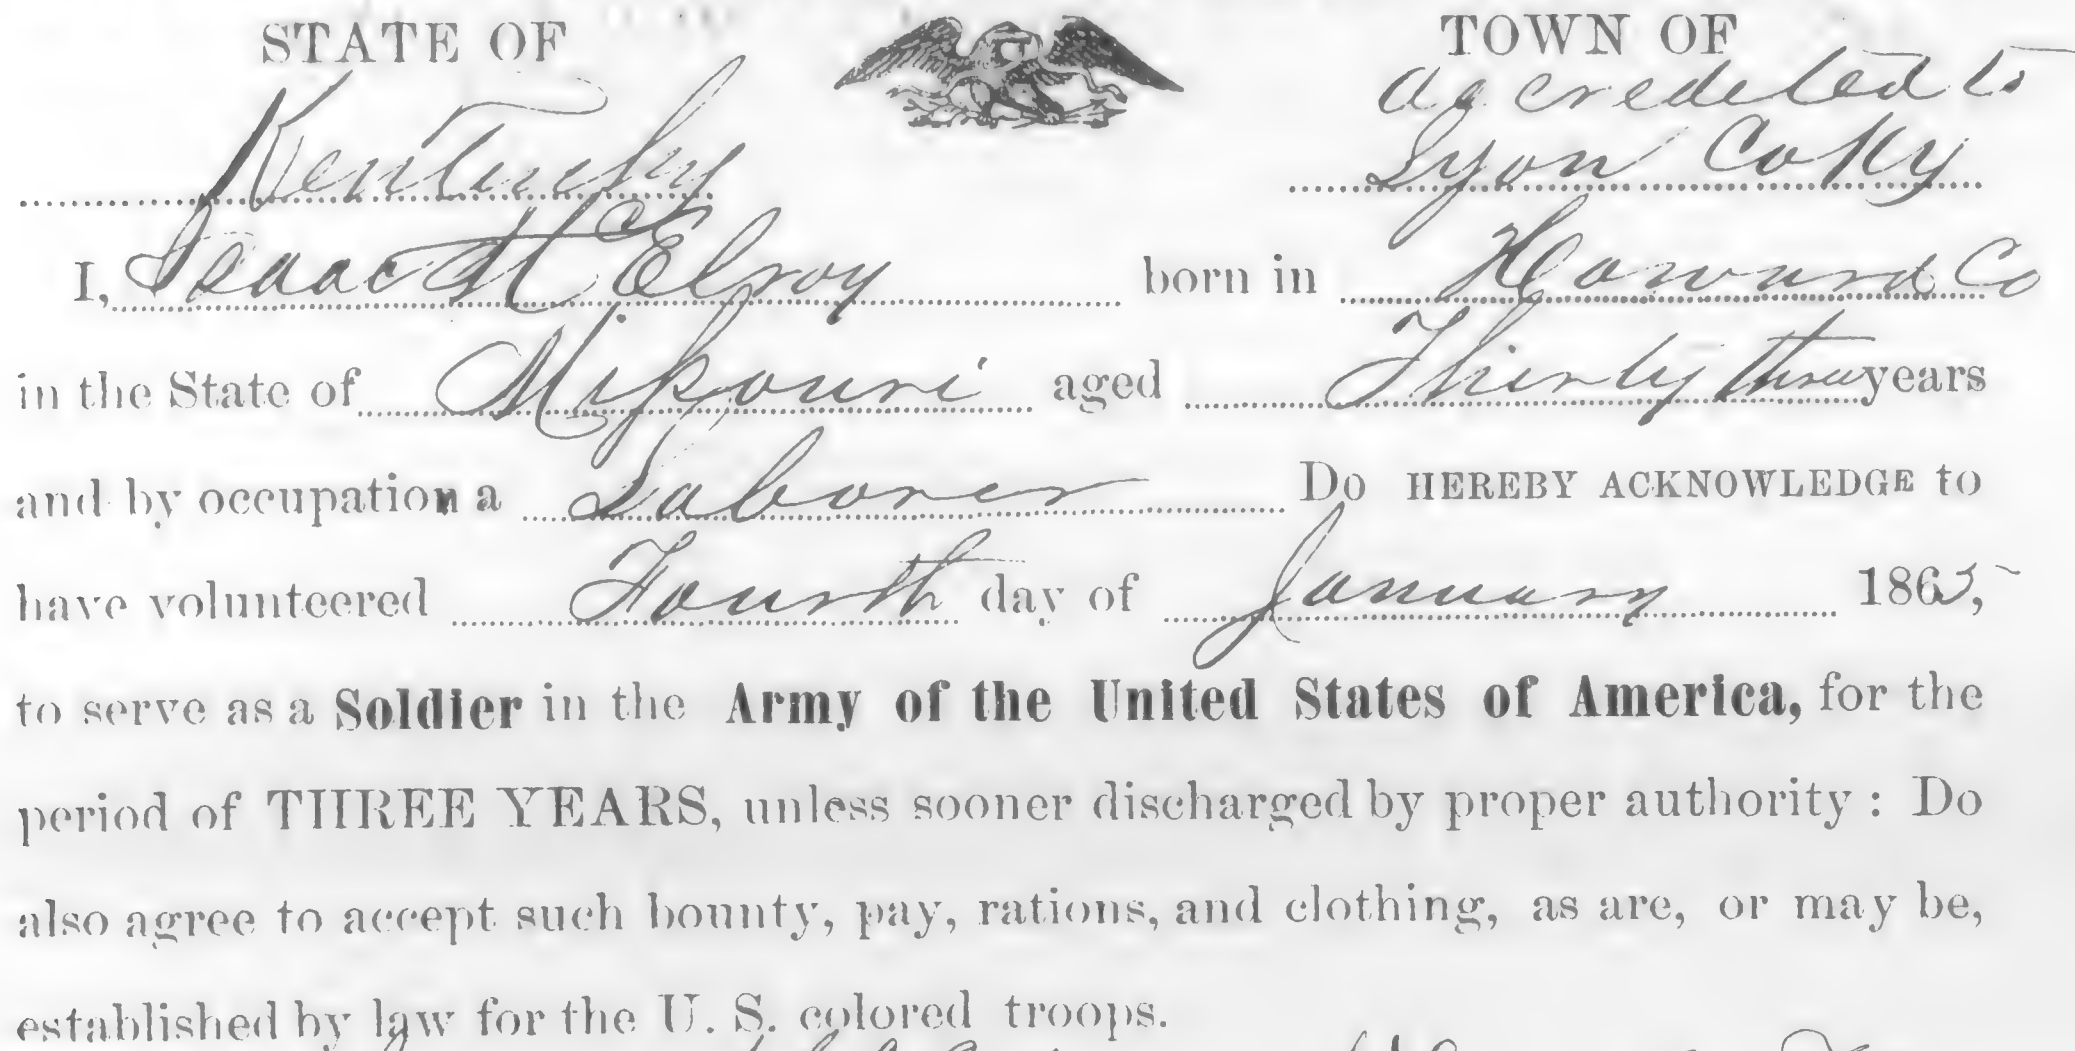 STATE OF
TOWN OF
Kentucky
accredeted to
Lyon Co Ky
I, Isaac McElroy born in Howard Co
in the State of Missouri aged Thirty three years
and by occupation a Laborer Do HEREBY ACKNOWLEDGE to
have volunteered Fourth day of January 1865,
to serve as a Soldier in the Army of the United States of America, for the
period of THREE YEARS, unless sooner discharged by proper authority : Do
also agree to accept such bounty, pay, rations, and clothing, as are, or may be,
established by law for the U. S. colored troops.